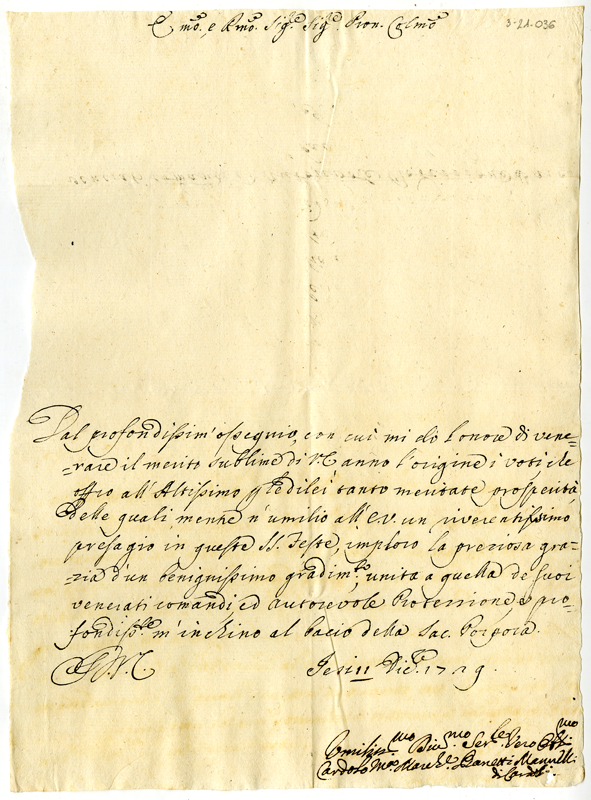 E.mo, e Rmo. Sig.e Sig.e Pron. Colmo
3-21-036
Dal profondissim'ossequio, con cui mi dò l'onore di vene=
=rare il merito sublime di V.E. anno l'origine i voti che
offro all'Altissimo p le di lei tanto meritate prosperità
Delle quali mentre n'umilio all'E.V. un riverentissimo
presagio in queste SS. Feste, imploro la preziosa gra=
=zia d'un benignissimo gradim.to, unita a quella de suoi
venerati comandi, ed autorevole Protezzione, e pro=
=fondiss.te m'inchino al bacio della Sac. Porpora.
Jesi 11 Dic.e 1729.
Umiliss.mo Div.mo Ser.e Vero
Cardolo March.e Pianetti